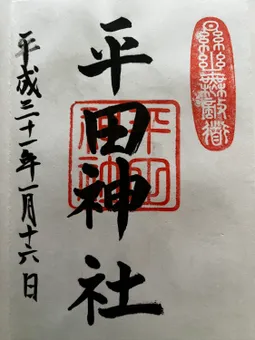 平田神社
平成三十一年一月十六日
平田神社